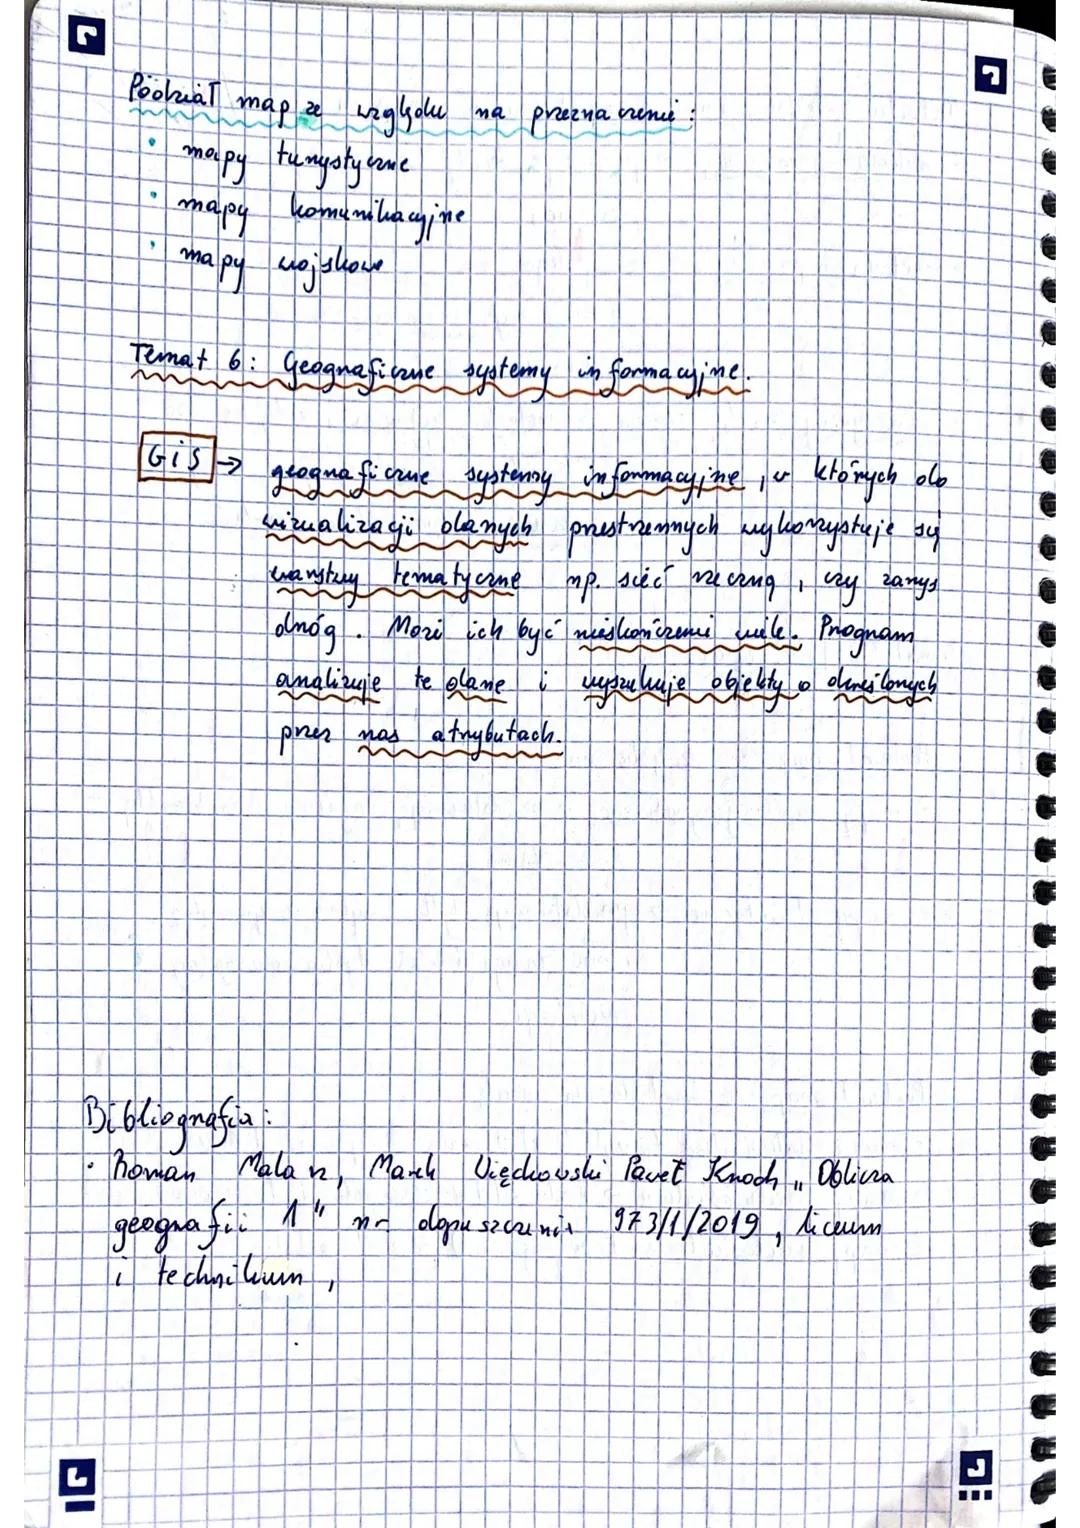 Podział map ze względu na przeznaczenie:
• mapy turystyczne
• mapy komunikacyjne
• mapy wojskowe
Temat 6: Geograficzne systemy informacyjne.
GiS → geograficzne systemy informacyjne, w których do
wizualizacji danych przestrzennych wykorzystuje się
warstwy tematyczne np. sieć rzeczną, czy zarys
dróg. Może ich być nieskończenie wiele. Program
analizuje te dane i wyszukuje objekty o określonych
przez nas atrybutach.
Bibliografia:
• Roman Malarz, Marek Więckowski Paweł Knoch „Oblicza
geografii 1" nr dopuszczenia 973/1/2019, liceum
i technikum,